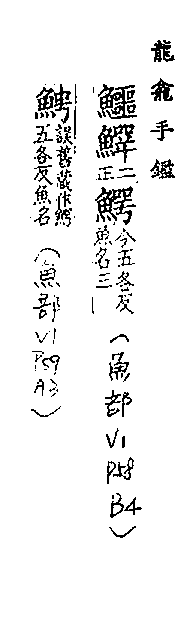 龍龕手鑑
鱷鱓二正鰐今五各反魚名三(魚部V1P58B4)
䱮誤舊藏作鰐五各反魚名(魚部V1P59A3)